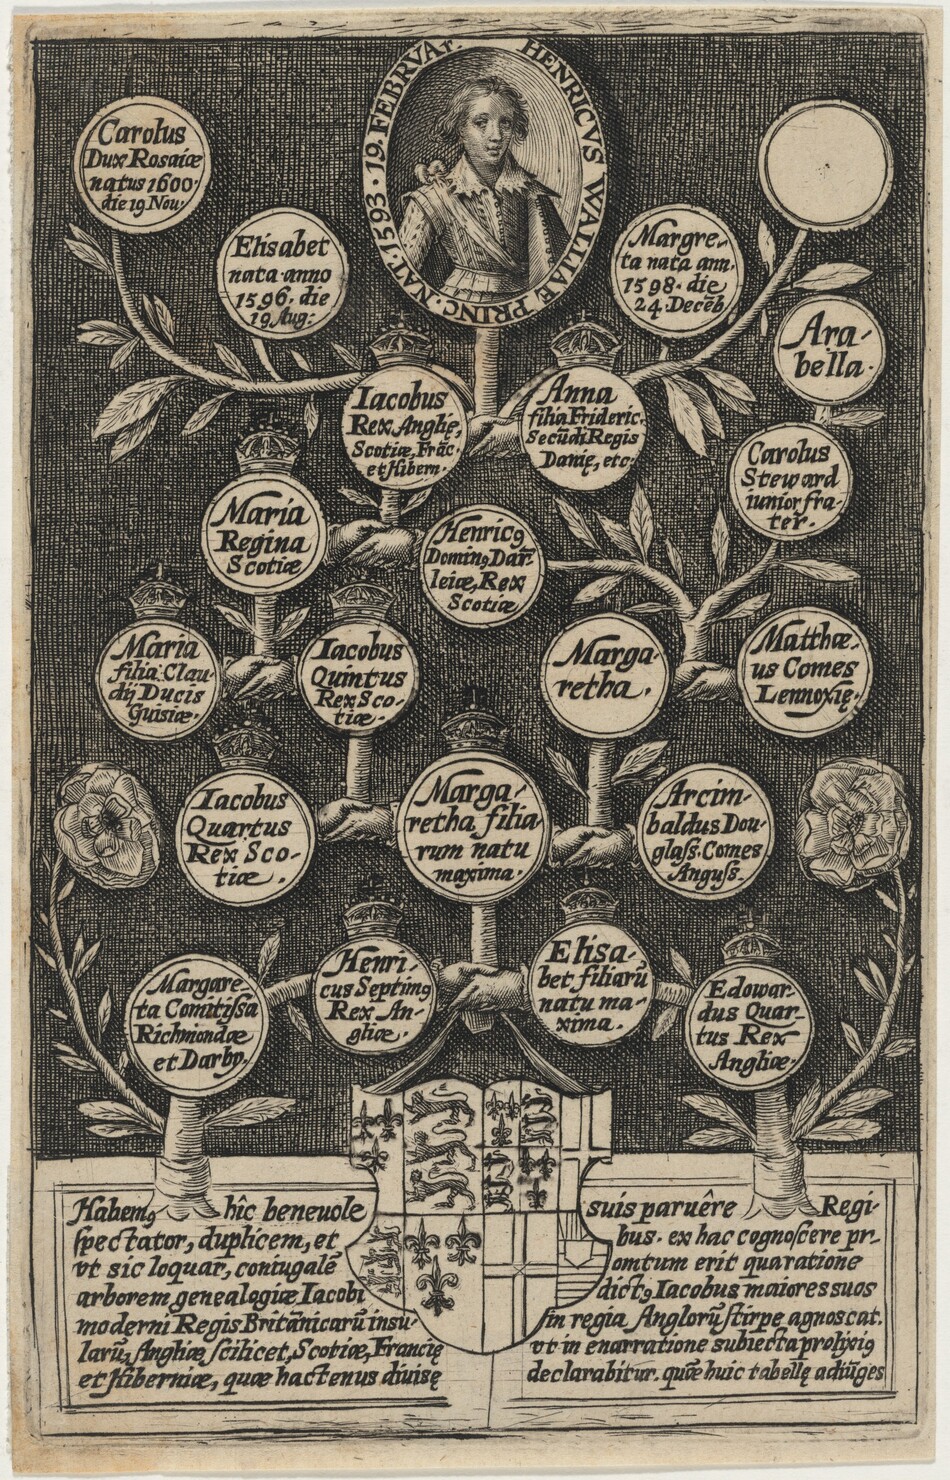 HENRICVS WALLIAE PRINC. NAT. 1593. 19. FEBRVAr.
Carolus
Dux Rosaiæ
natus 1600.
die 19 Nou.
Elisabet
nata anno
1596. die
19 Aug:
Margre-
ta nata ann.
1598. die
24. Decēb.
Ara-
bella.
Iacobus
Rex Anglię,
Scotiæ, Frāc.
et Hibern.
Anna
filia Frideric.
Secūdi Regis
Danię, etc.
Carolus
Steward
iunior fra-
ter.
Maria
Regina
Scotiæ
Henricꝯ
Dominꝯ Dar-
leiæ, Rex
Scotiæ
Maria
filia Clau-
dij Ducis
Guisiæ.
Iacobus
Quintus
Rex Sco-
tiæ.
Marga-
retha.
Matthæ-
us Comes
Lennoxię.
Iacobus
Quartus
Rex Sco-
tiæ.
Marga-
retha filia-
rum natu
maxima.
Arcim-
baldus Dou-
glaſs. Comes
Anguſs.
Margare-
ta Comitiſsa
Richmondæ
et Darby.
Henri-
cus Septimꝯ
Rex An-
gliæ.
Elisa-
bet filiarū
natu ma-
xima.
Edowar-
dus Quar-
tus Rex
Angliæ.
Habemꝯ hîc beneuole
ſpectator, duplicem, et
vt sic loquar, coniugalē
arborem genealogiæ Iacobi
moderni Regis Britānicarū insu-
larū, Angliæ ſcilicet, Scotiæ, Francię
et Hiberniæ, quæ hactenus diuisę
suis paruêre Regi-
bus. ex hac cognoſcere pr-
omtum erit qua ratione
dictꝯ Iacobus maiores suos
in regia Anglorū ſtirpe agnoscat.
vt in enarratione subiecta prolixiꝯ
declarabitur. quæ huic tabellę adiūges